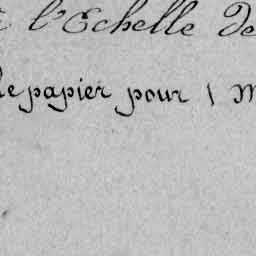 l'Echelle de
le papier pour 1 m